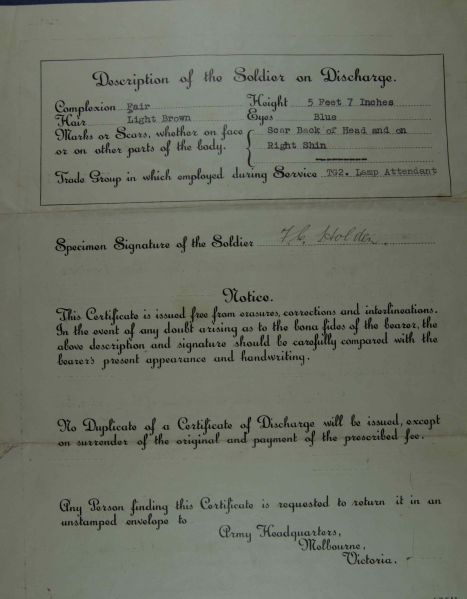 Description of the Soldier on Discharge.
Complexion Fair Height 5 Feet 7 Inches
Hair Light Brown Eyes Blue
Marks or Scars, whether on face or on other parts of the body. Scar Back of Head and on Right Shin
Trade Group in which employed during Service TG2. Lamp Attendant
Specimen Signature of the Soldier Holden
Notice.
This Certificate is issued free from erasures, corrections and interlineations.
In the event of any doubt arising as to the bona fides of the bearer, the
above description and signature should be carefully compared with the
bearer's present appearance and handwriting.
No Duplicate of a Certificate of Discharge will be issued, except
on surrender of the original and payment of the prescribed fee.
Any Person finding this Certificate is requested to return it in an
unstamped envelope to
Army Headquarters,
Melbourne,
Victoria.